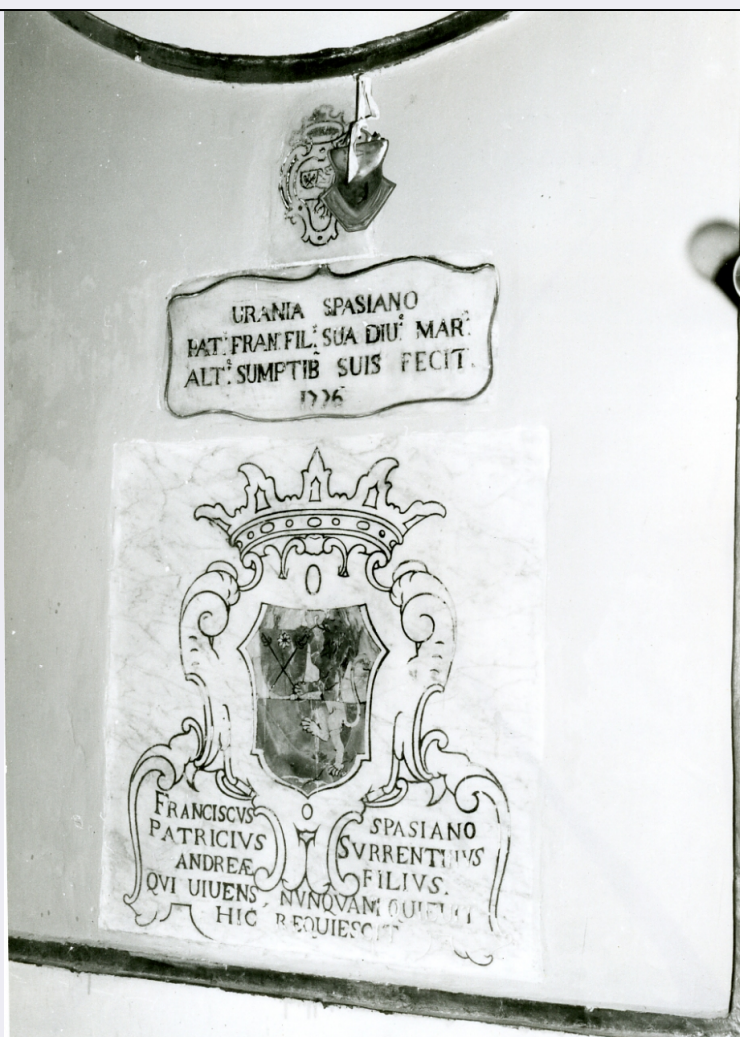 URANIA SPASIANO
PAT: FRAN: FIL: SUA DIU: MAR:
ALT: SUMPTIB SUIS FECIT.
FRANCISCVS SPASIANO
PATRICIVS SVRRENTINVS
ANDREÆ FILIVS.
QVI UIUENS, NVNQVAM QUIEUIT
HIC REQUIESCIT